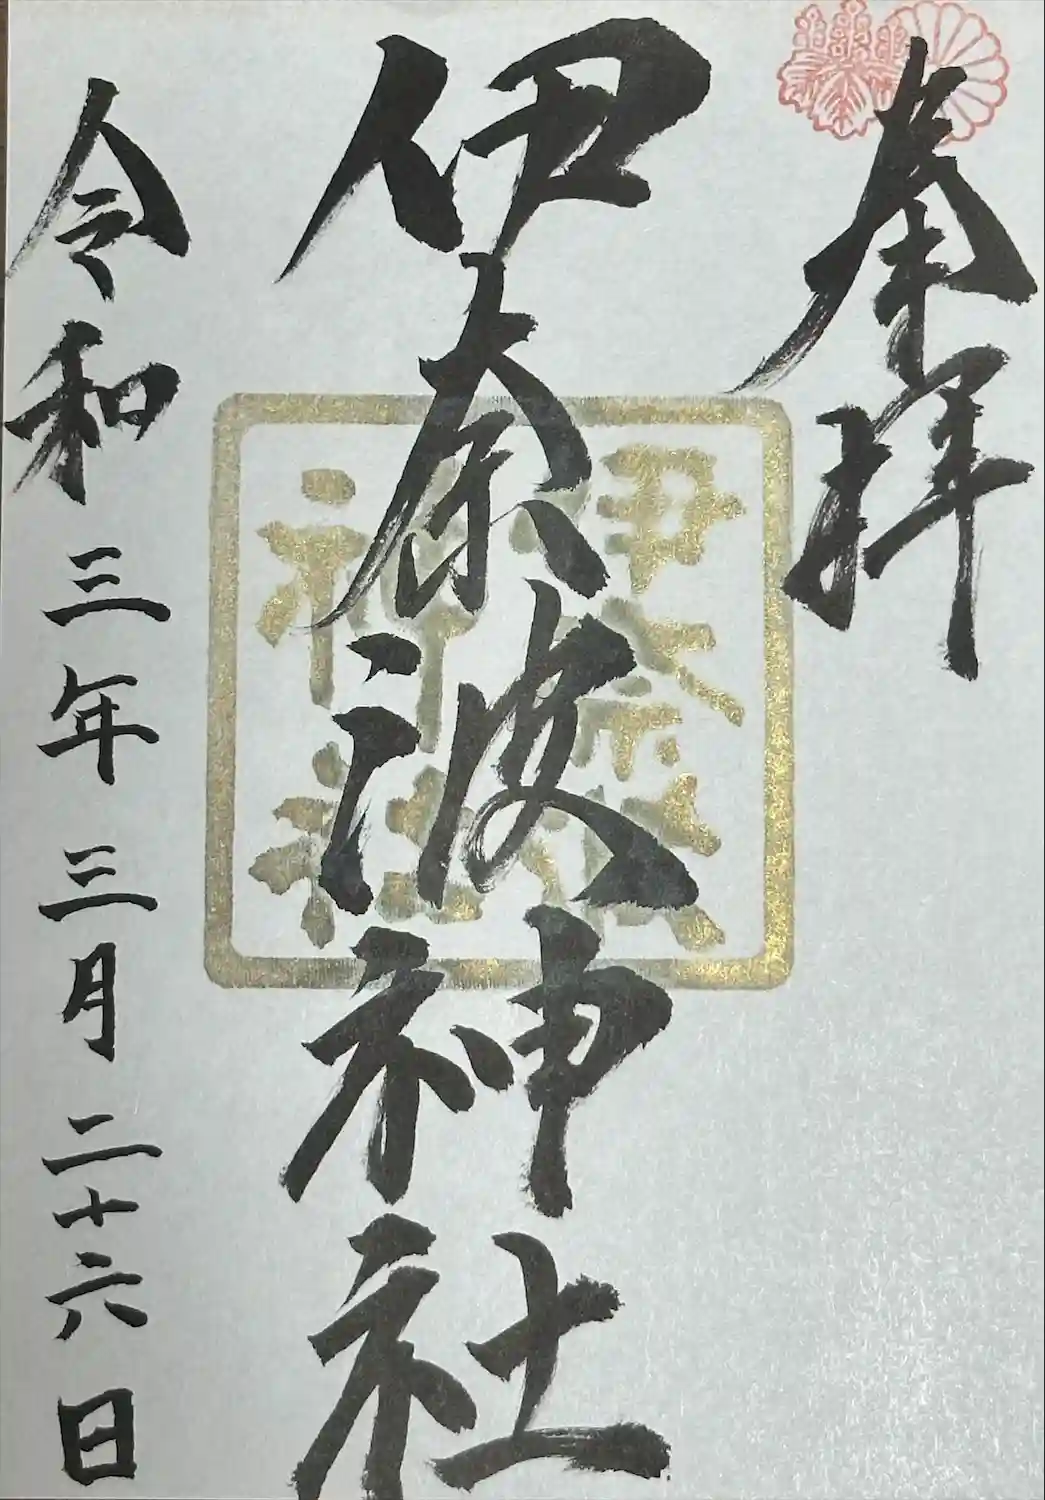 奉拝
伊奈波神社
伊奈波
神社
令和三年三月二十六日